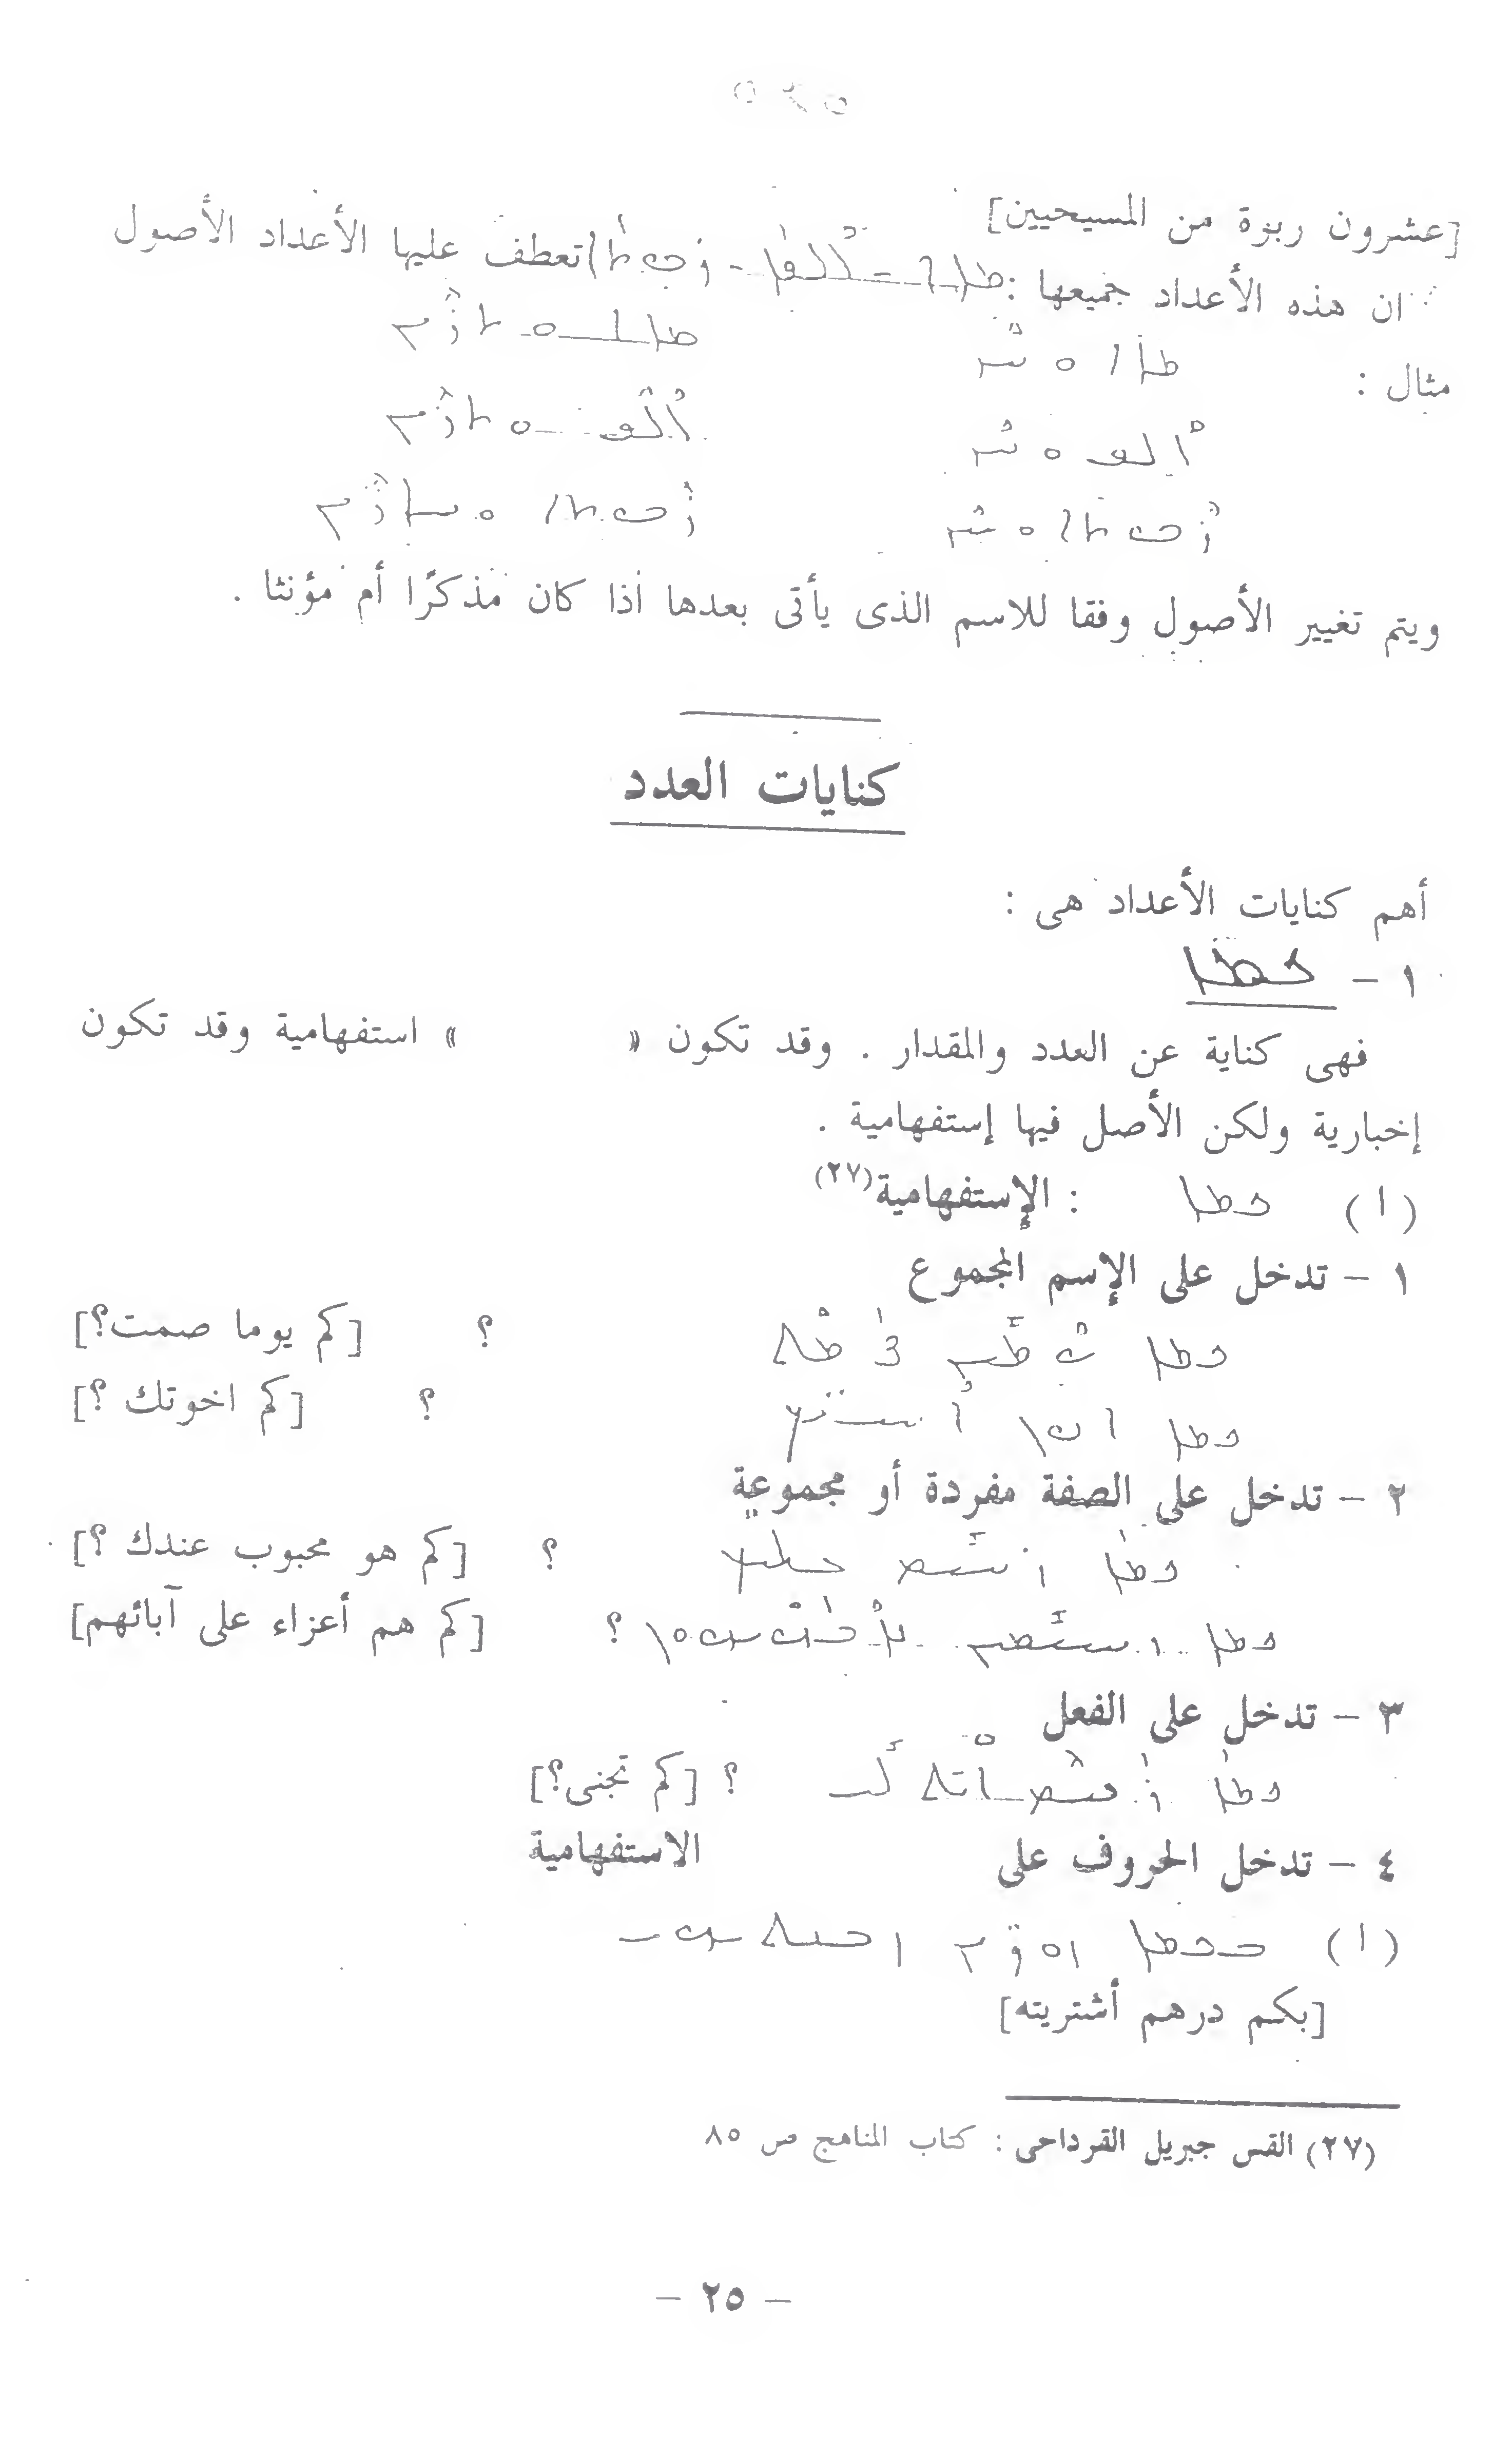 ٥٢٥
[عشرون ربوة من المسيحيين]
ان هذه الأعداد جميعها : ܡܐܐ - ܐܠܦܐ - ܪܒܘܬܐ تعطف عليها الأعداد الأصول
مثال : ܡܐܐ ܘܚܕ
ܐܠܦ ܘܚܕ ܐܠܦ ܘܬܪܝܢ
ويتم تغيير الأصول وفقا للاسم الذى يأتى بعدها اذا كان مذكرًا أم مؤنثا .
كنايات العدد
أهم كنايات الأعداد هى :
١ - ܟܡܐ
فهى كناية عن العدد والمقدار . وقد تكون « » استفهامية وقد تكون
إخبارية ولكن الأصل فيها إستفهامية .
(ا) ܟܡܐ : الإستفهامية(٢٧)
١ - تدخل على الإسم المجموع
ܟܡܐ ܝܘܡܝܢ ܨܡܬ ؟ [كم يوما صمت؟]
ܟܡܐ ܐܢܘܢ ܐܚܝܟ ؟ [كم اخوتك ؟]
٢ - تدخل على الصفة مفردة أو مجموعة
ܟܡܐ ܪܚܝܡ ܥܠܝܟ ؟ [كم هو محبوب عندك ؟]
ܟܡܐ ܪܚܝܡܝܢ ؟ [كم هم أعزاء على آبائهم]
٣ - تدخل على الفعل
ܟܡܐ ؟ [كم تجنى؟]
٤ - تدخل الحروف على الاستفهامية
(ا) ܒܟܡܐ ܙܘܙܝܢ ܙܒܢܬܝܗܝ
[بكم درهم أشتريته]
(٢٧) القس جبريل القرداحى : كتاب المناهج ص ٨٥
- ٢٥ -